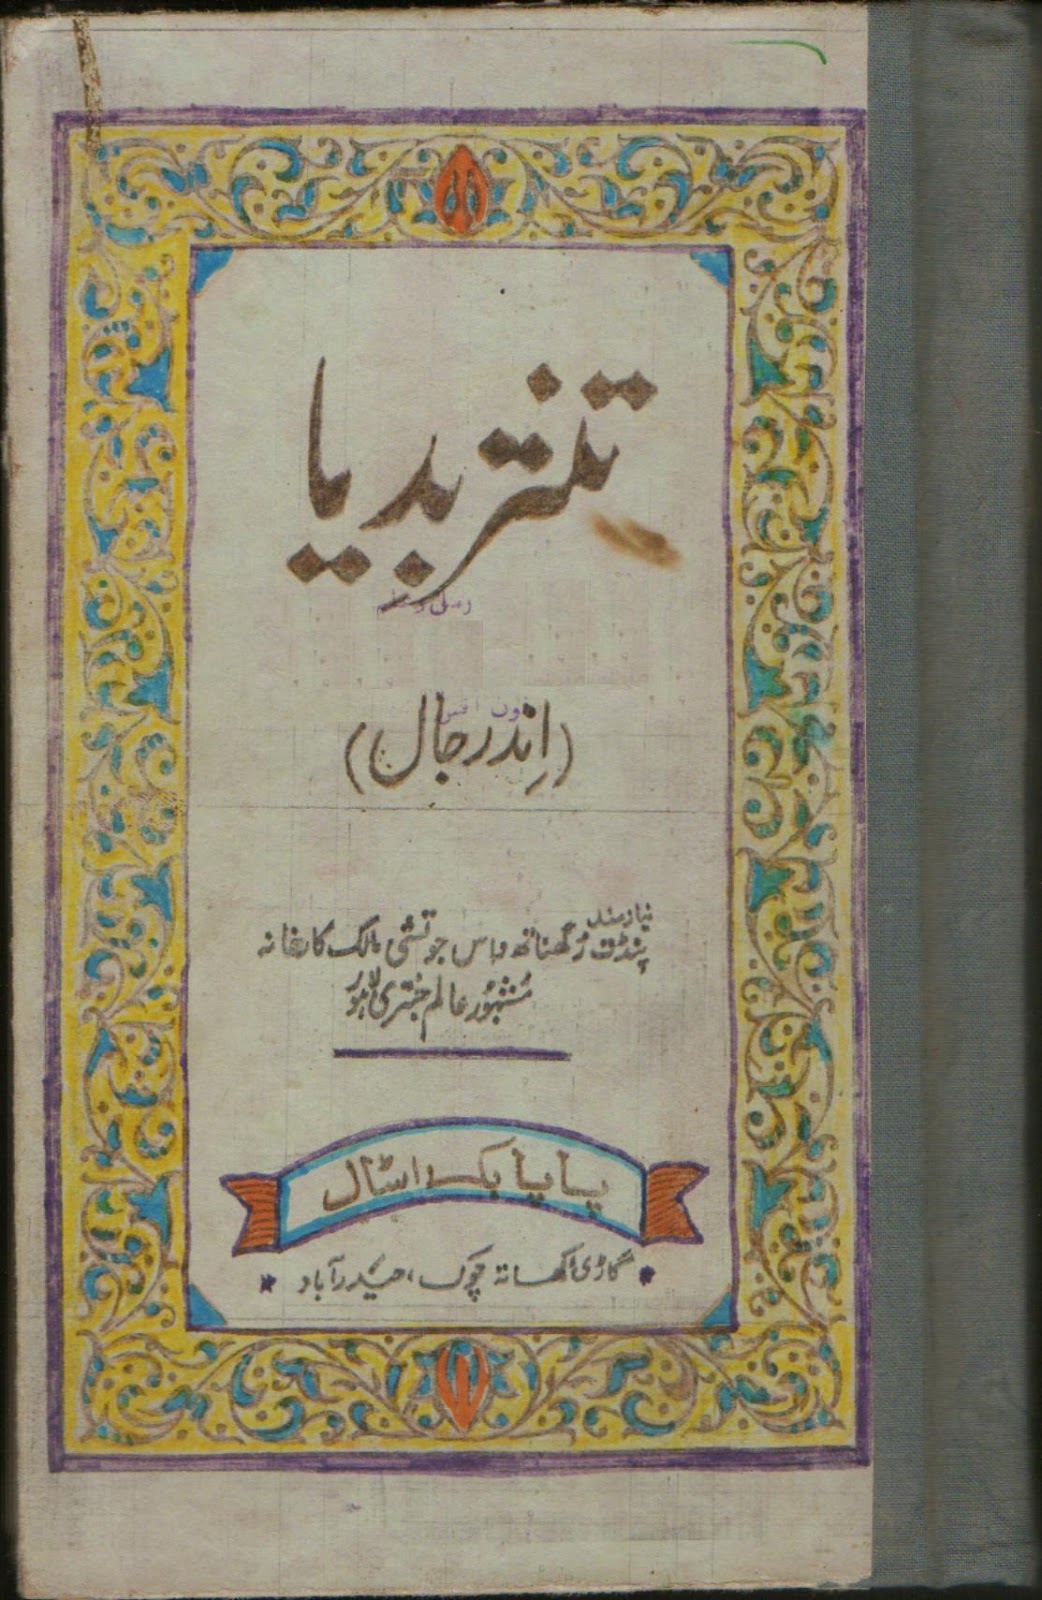 تنتر بدیا
(اِندر جال)
نیازمند
پنڈت رگھناتھ داس جوتشی مالک کارخانہ
مشہور عالم جنتری لاہور
پاپا بک اسٹال
گاڑی کھاتہ چوک، حیدرآباد